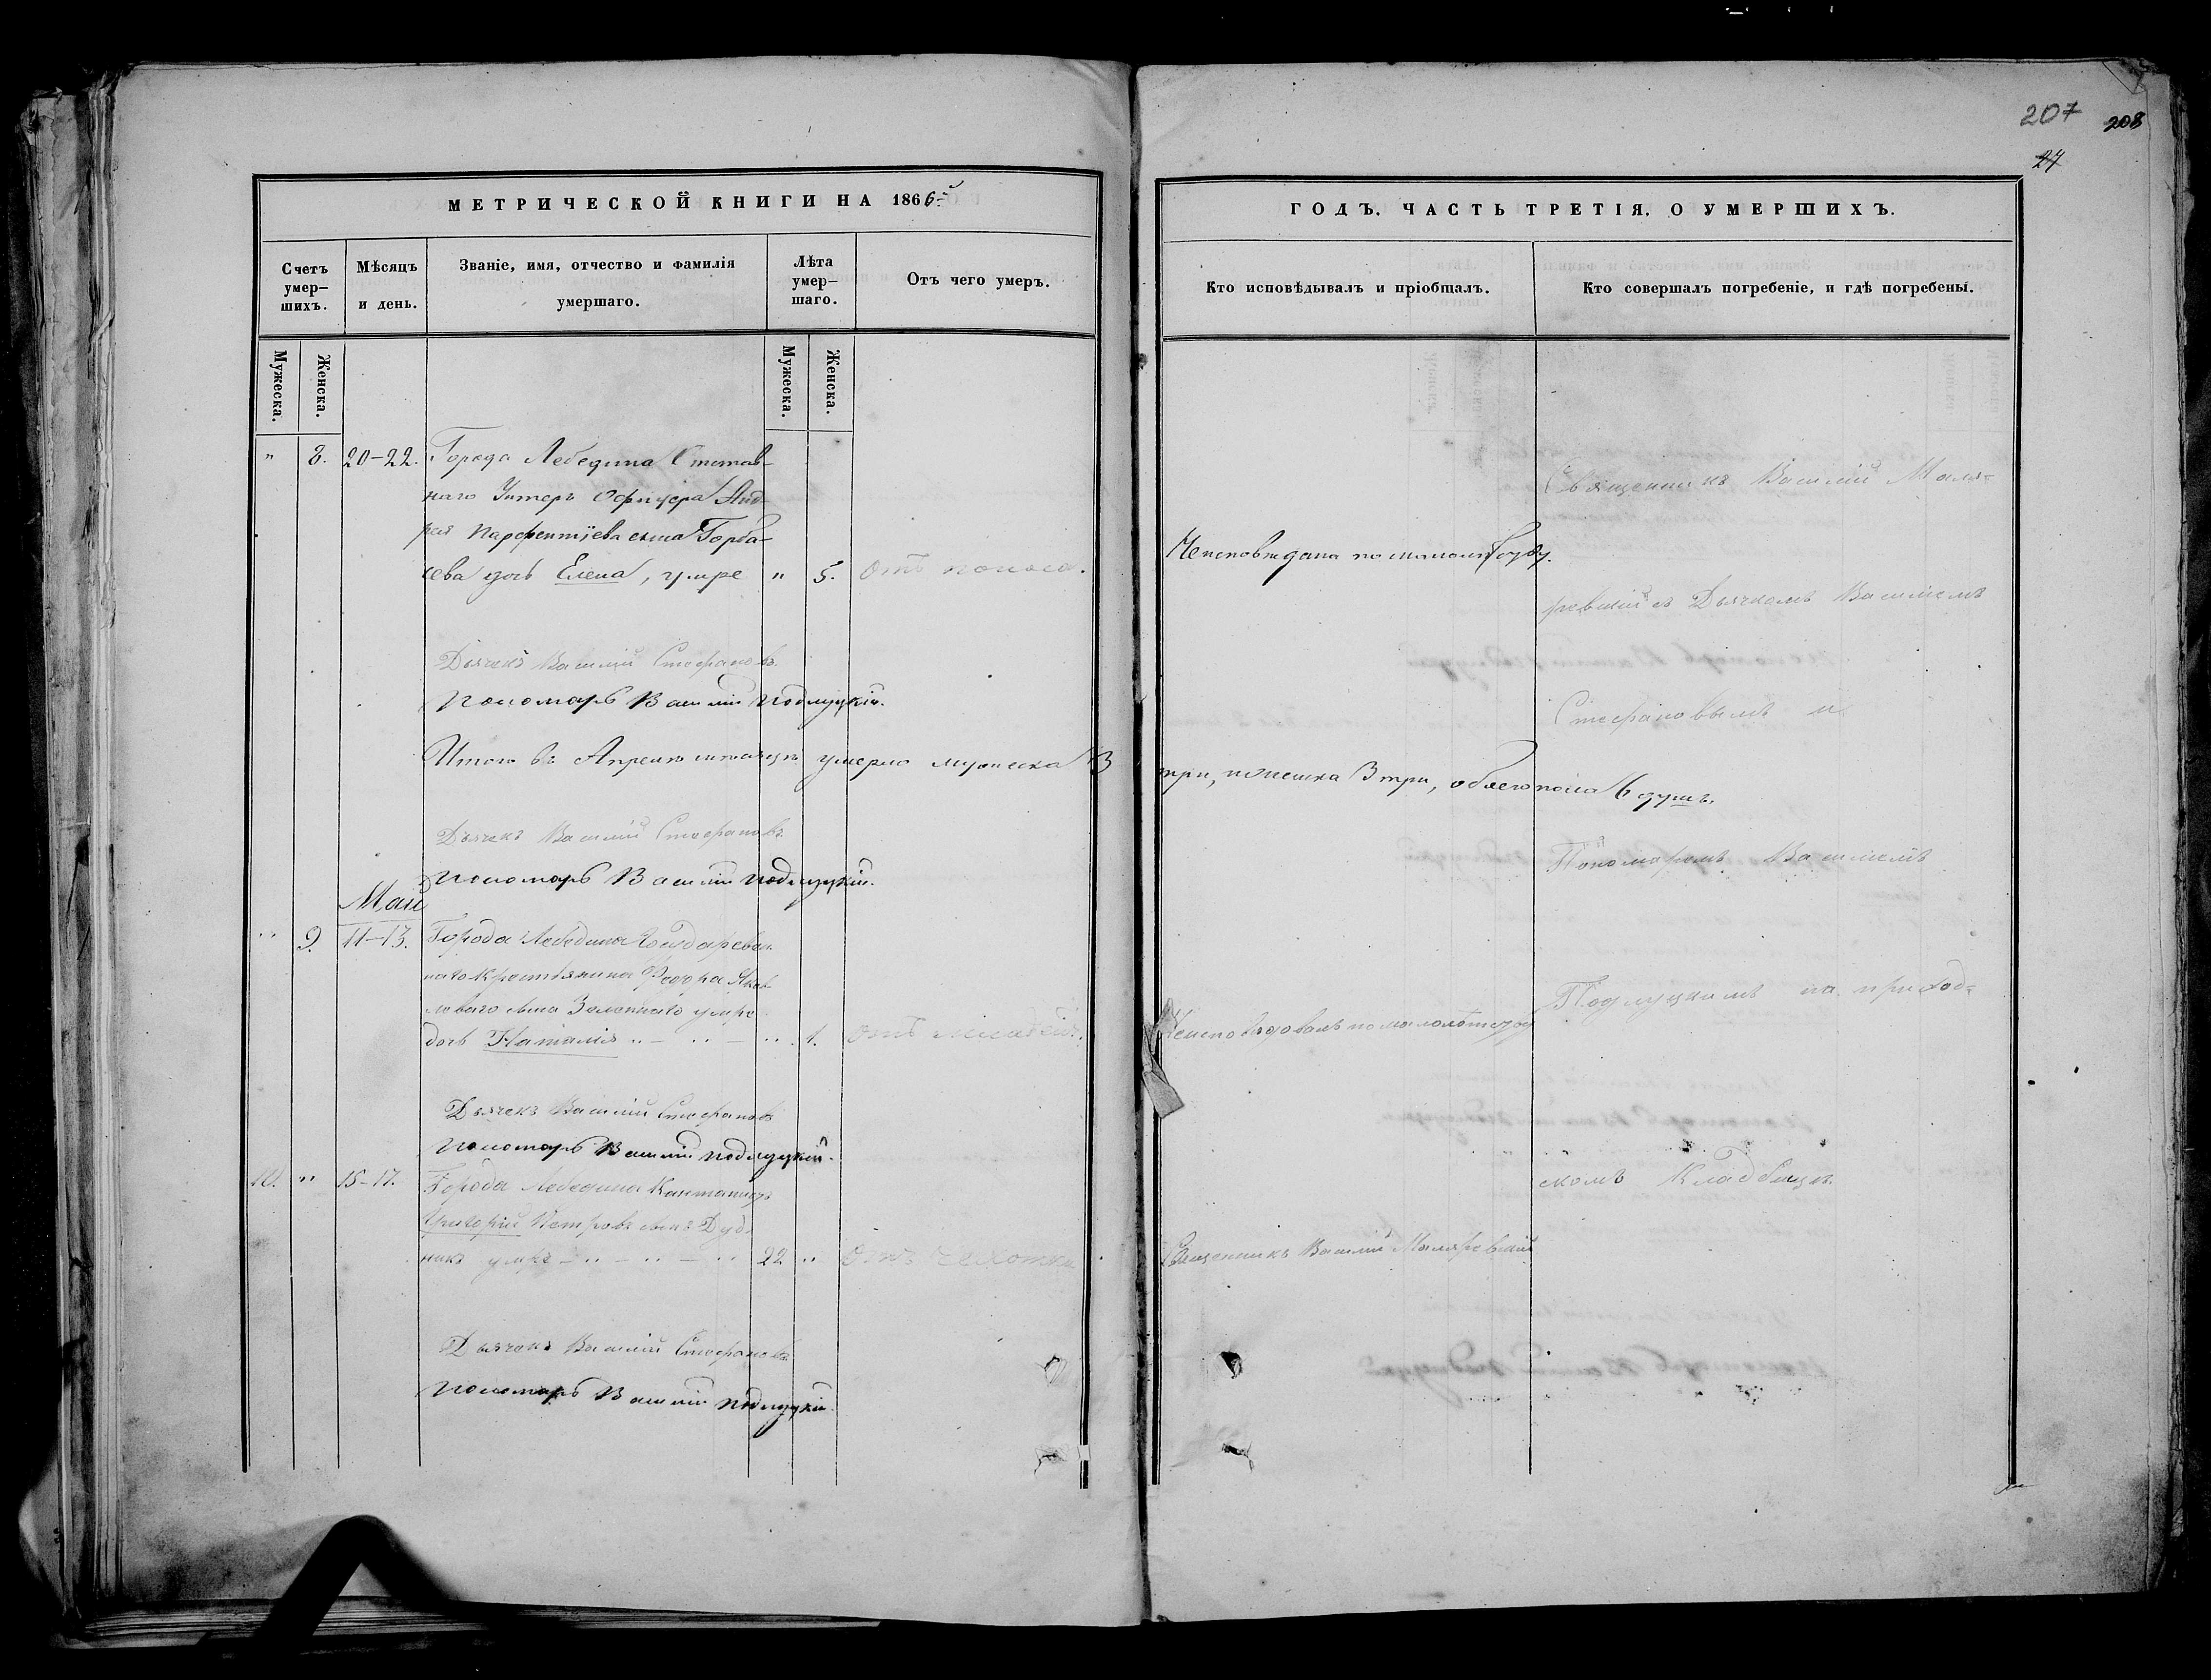 207
208
27
МЕТРИЧЕСКОЙ КНИГИ НА 1866й
Счетъ умер-шихъ.
Мѣсяцъ и день.
Званіе, имя, отчество и фамилія умершаго.
Лѣта умер-шаго.
Отъ чего умеръ.
Мужеска.
Женска.
Мужеска.
Женска.
" 8. 20-22. Города Лебедина Отстав-
наго Унтеръ Офицера Анд-
рея Парфентіева сына Горба-
сева дочь Елена, умре " 5. Отъ поноса.
Дьячекъ Василій Стефановъ
Пономарь Василій Подлуцкій.
Итого въ Апрелѣ мѣсяцѣ умерло мужеска 3
Дьячекъ Василій Стефановъ
Пономарь Василій Подлуцкій.
Май
" 9. 11-13. Города Лебедина Государствен-
наго Крестьянина Федора Яков-
лева сына умре
дочь Наталія " - " - " 1. Отъ
Дьячекъ Василій Стефановъ
Пономарь Василій Подлуцкій.
10. " 15-17. Города Лебедина
Григорій Петровъ сынъ Дуд-
никъ умре - " - " - " 22 " Отъ чахотки
Дьячекъ Василій Стефановъ
Пономарь Василій Подлуцкій.
ГОДЪ. ЧАСТЬ ТРЕТІЯ. О УМЕРШИХЪ.
Кто исповѣдывалъ и пріобщалъ.
Кто совершалъ погребеніе, и гдѣ погребены.
Священникъ Василій Маля-
Неисповѣдана по малолѣтству.
ревскій съ Дьячкомъ Василіемъ
Стефановымъ и
три, женска 3 три, обоего пола 6 душъ.
Пономаремъ Василіемъ
Подлуцкимъ на приход-
по малолѣтству
скомъ Кладбищѣ.
Священникъ Василій Маляревскій